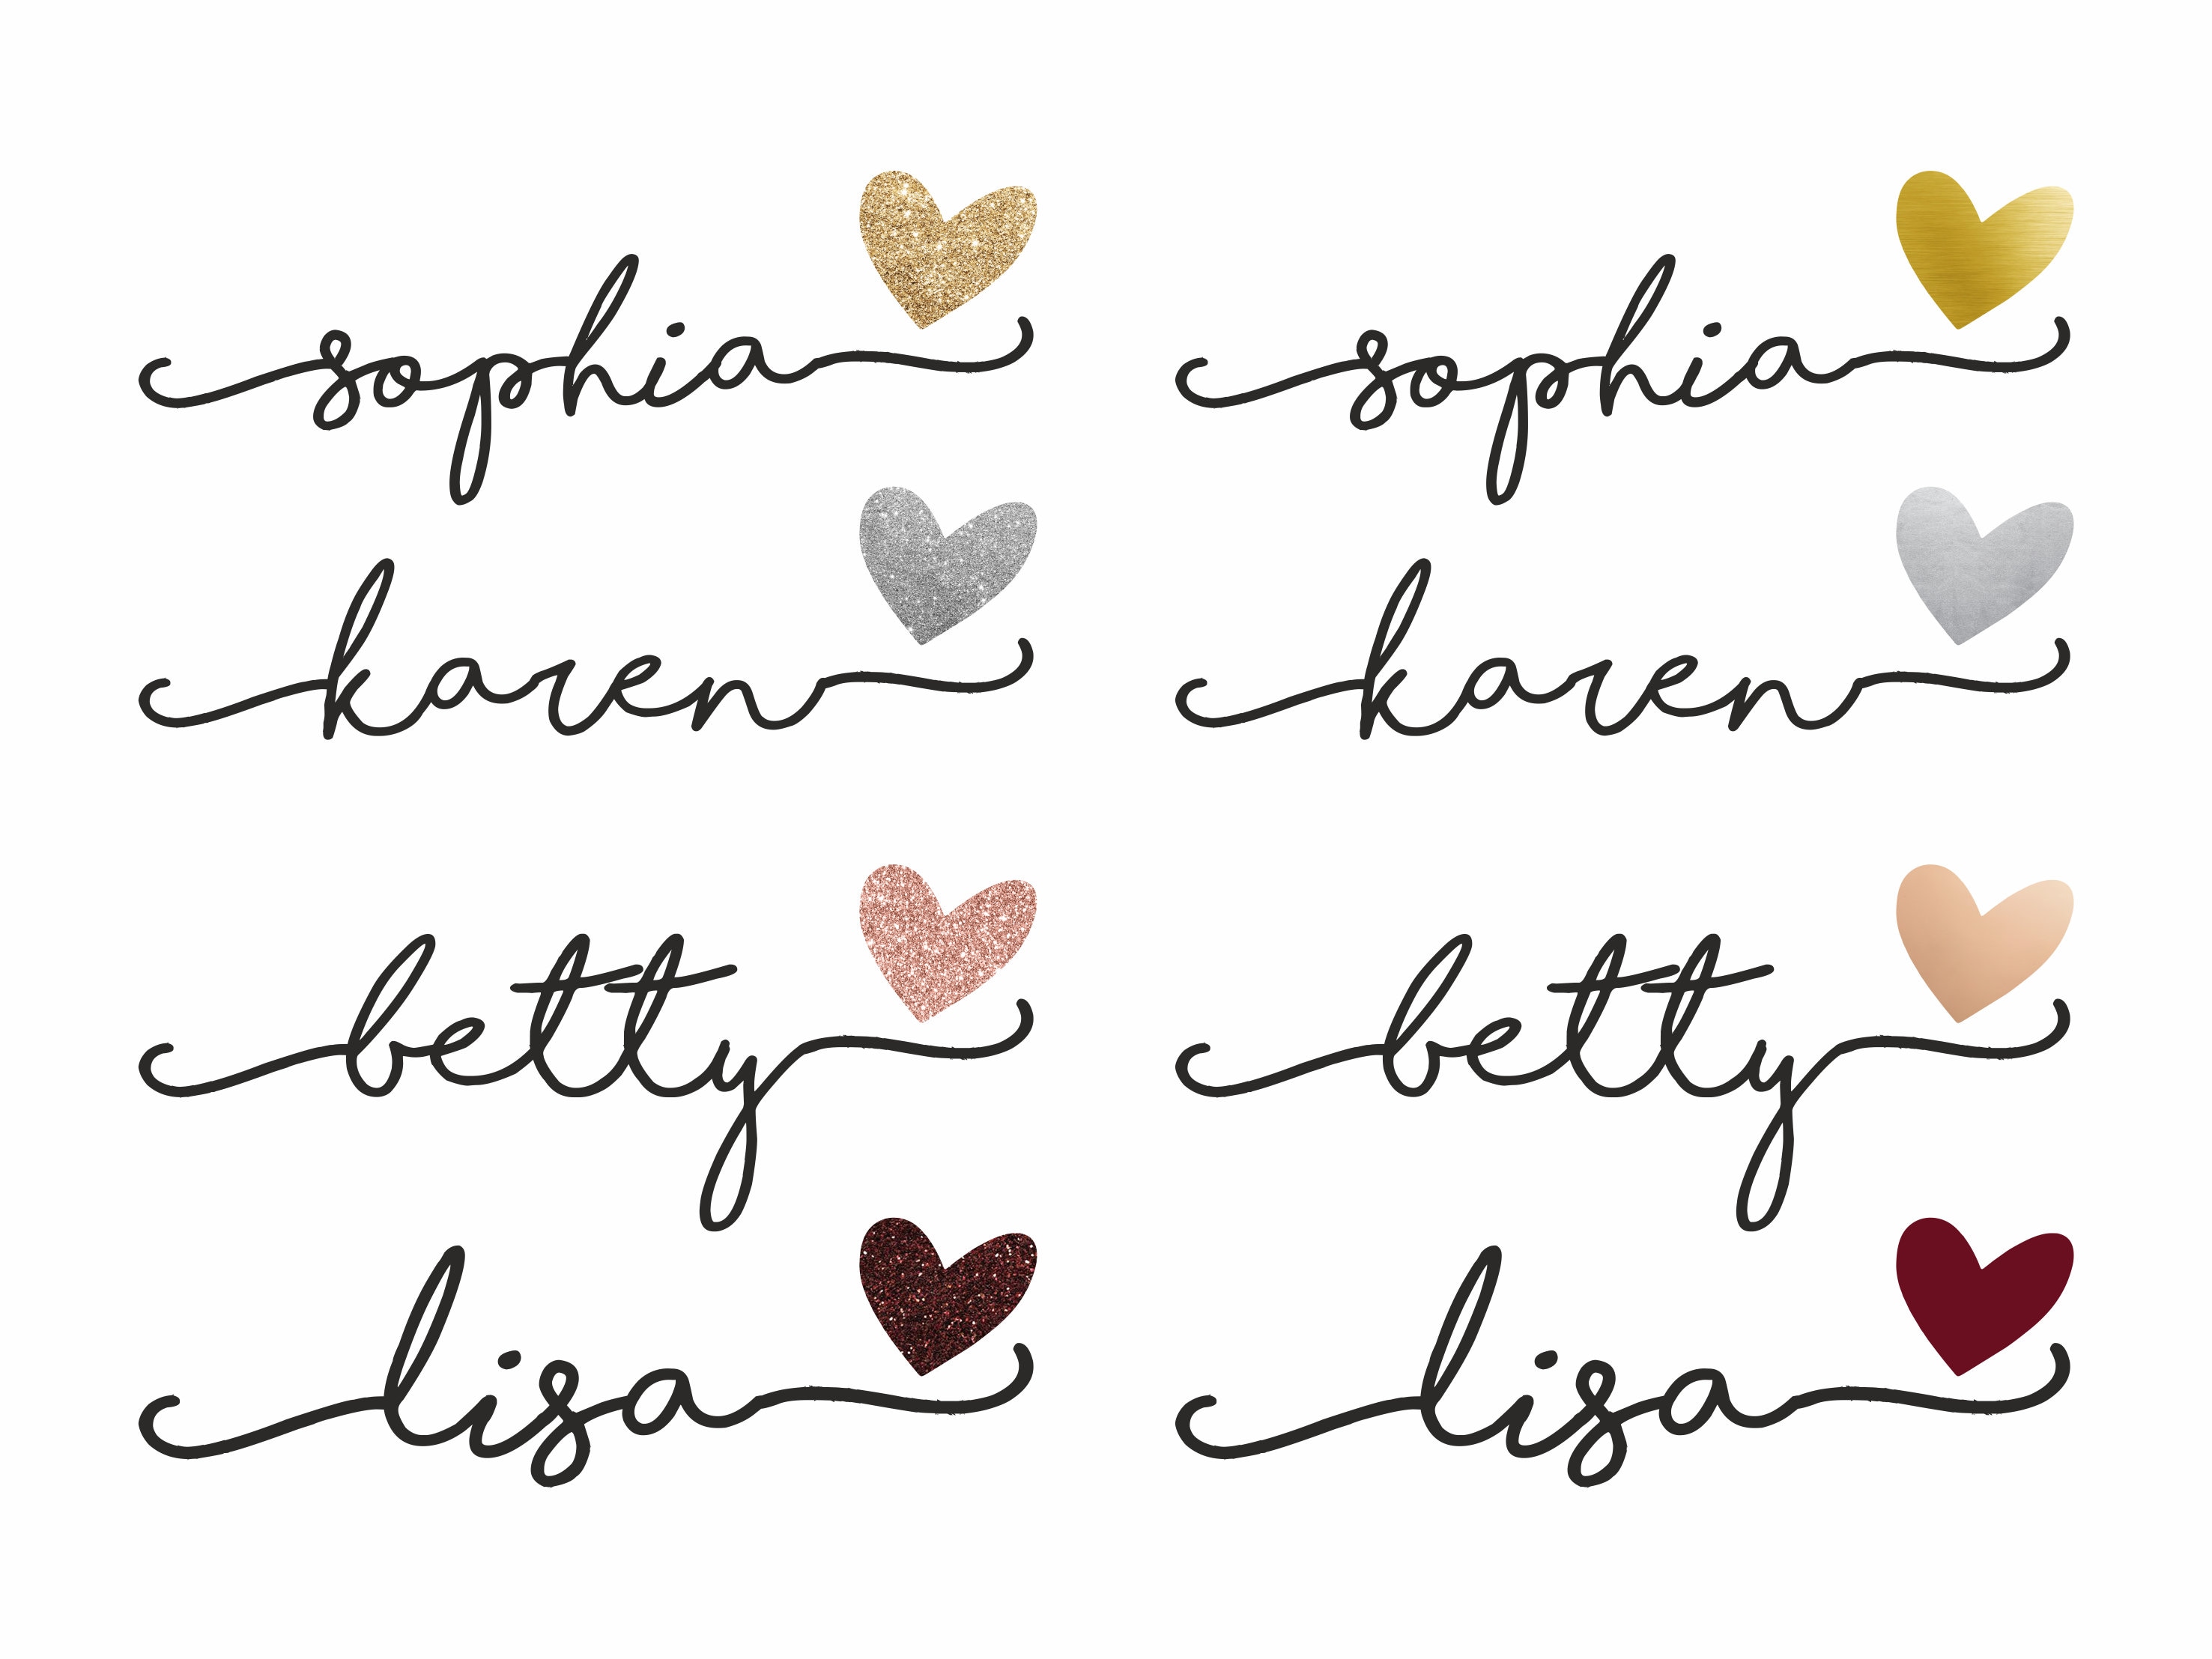 sophia sophia
karen karen
betty betty
lisa lisa